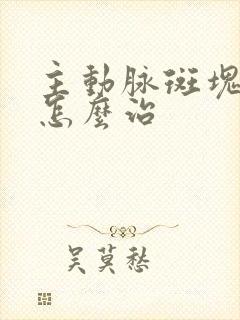 主動脉斑塊
怎麼治
吴莫愁